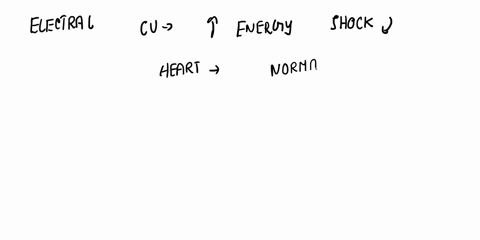 ELECTRAL CU → ↑ ENERGY SHOCK
HEART → NORMA